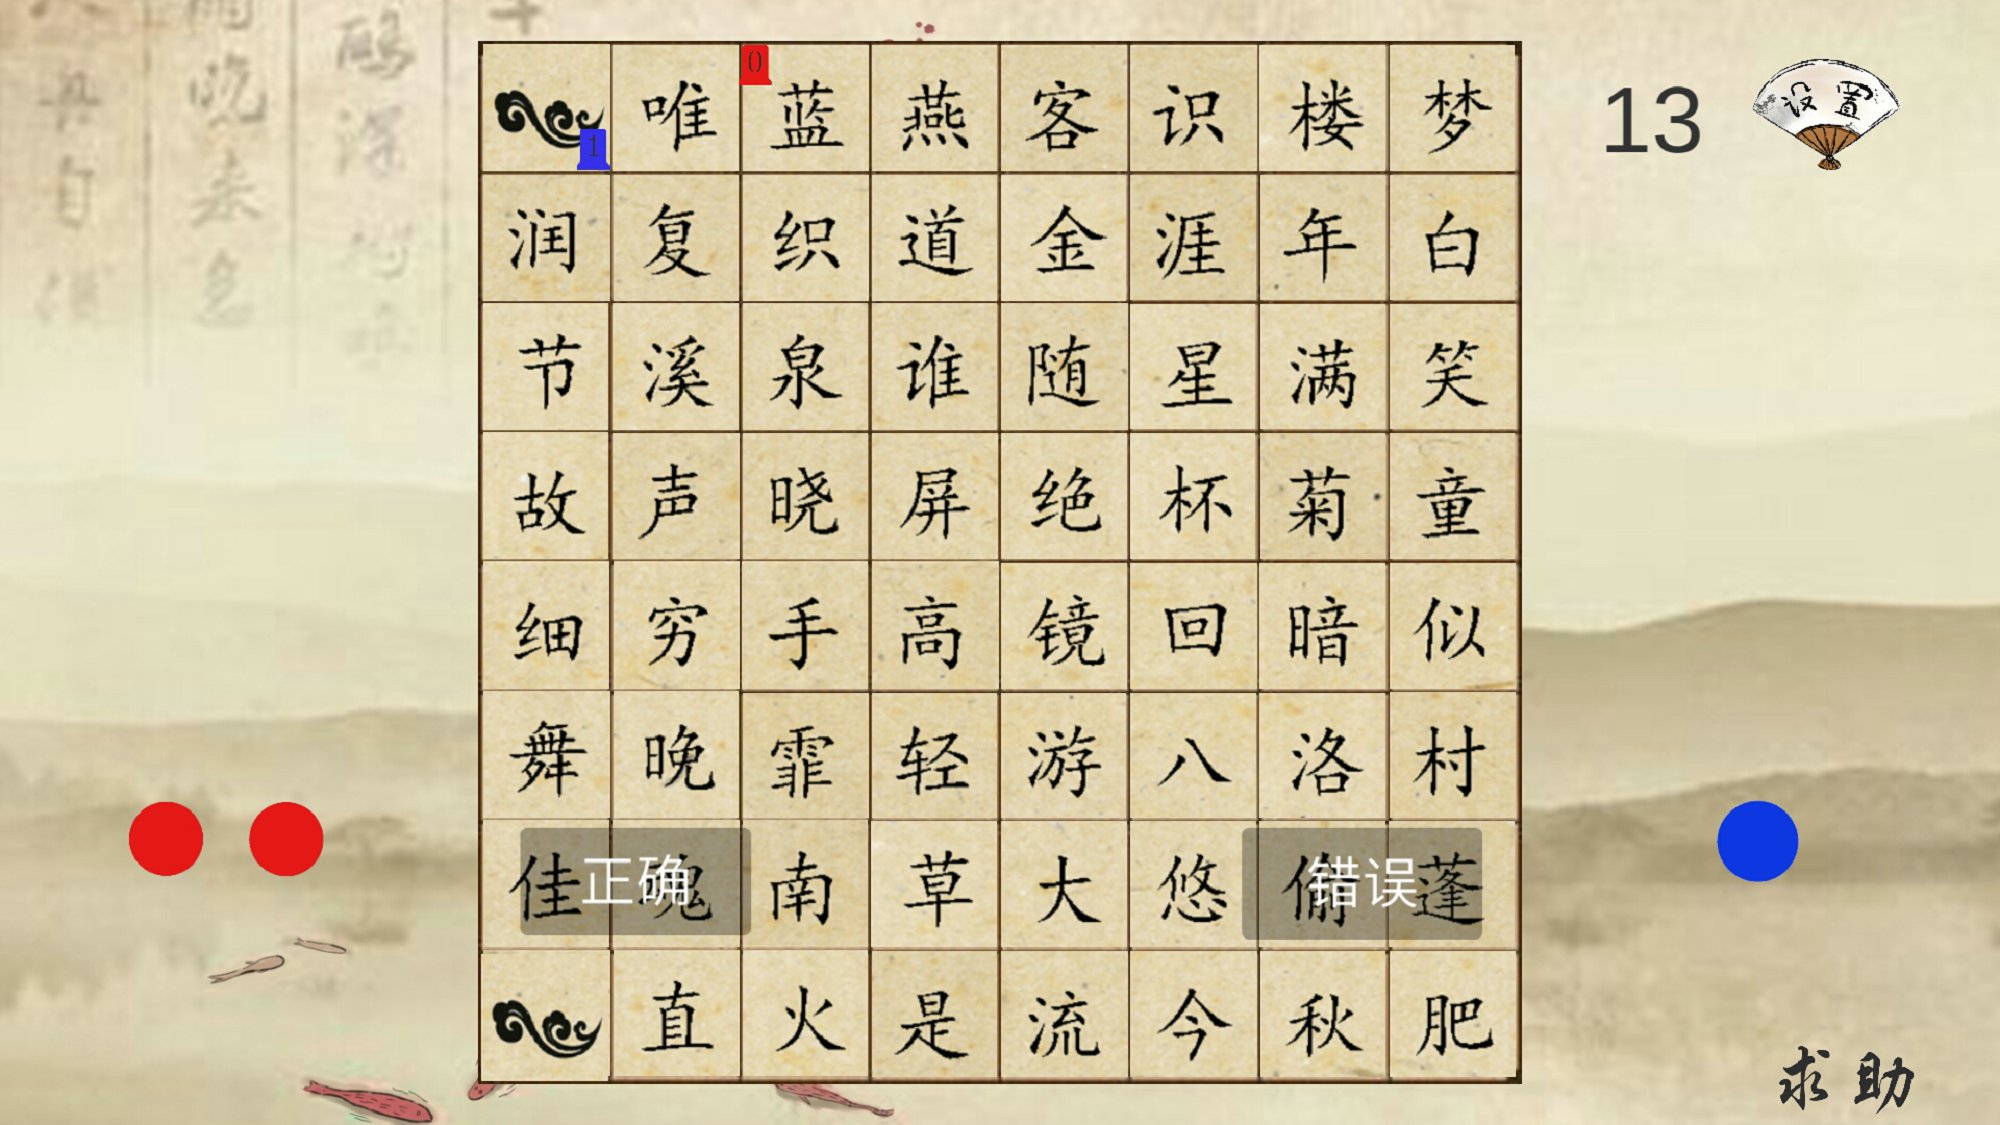 0
唯 蓝 燕 客 识 楼 梦
1
13
设置
润 复 织 道 金 涯 年 白
节 溪 泉 谁 随 星 满 笑
故 声 晓 屏 绝 杯 菊 童
细 穷 手 高 镜 回 暗 似
舞 晚 霏 轻 游 八 洛 村
佳 魂 南 草 大 悠 偷 蓬
正确
错误
直 火 是 流 今 秋 肥
求助
晚来急